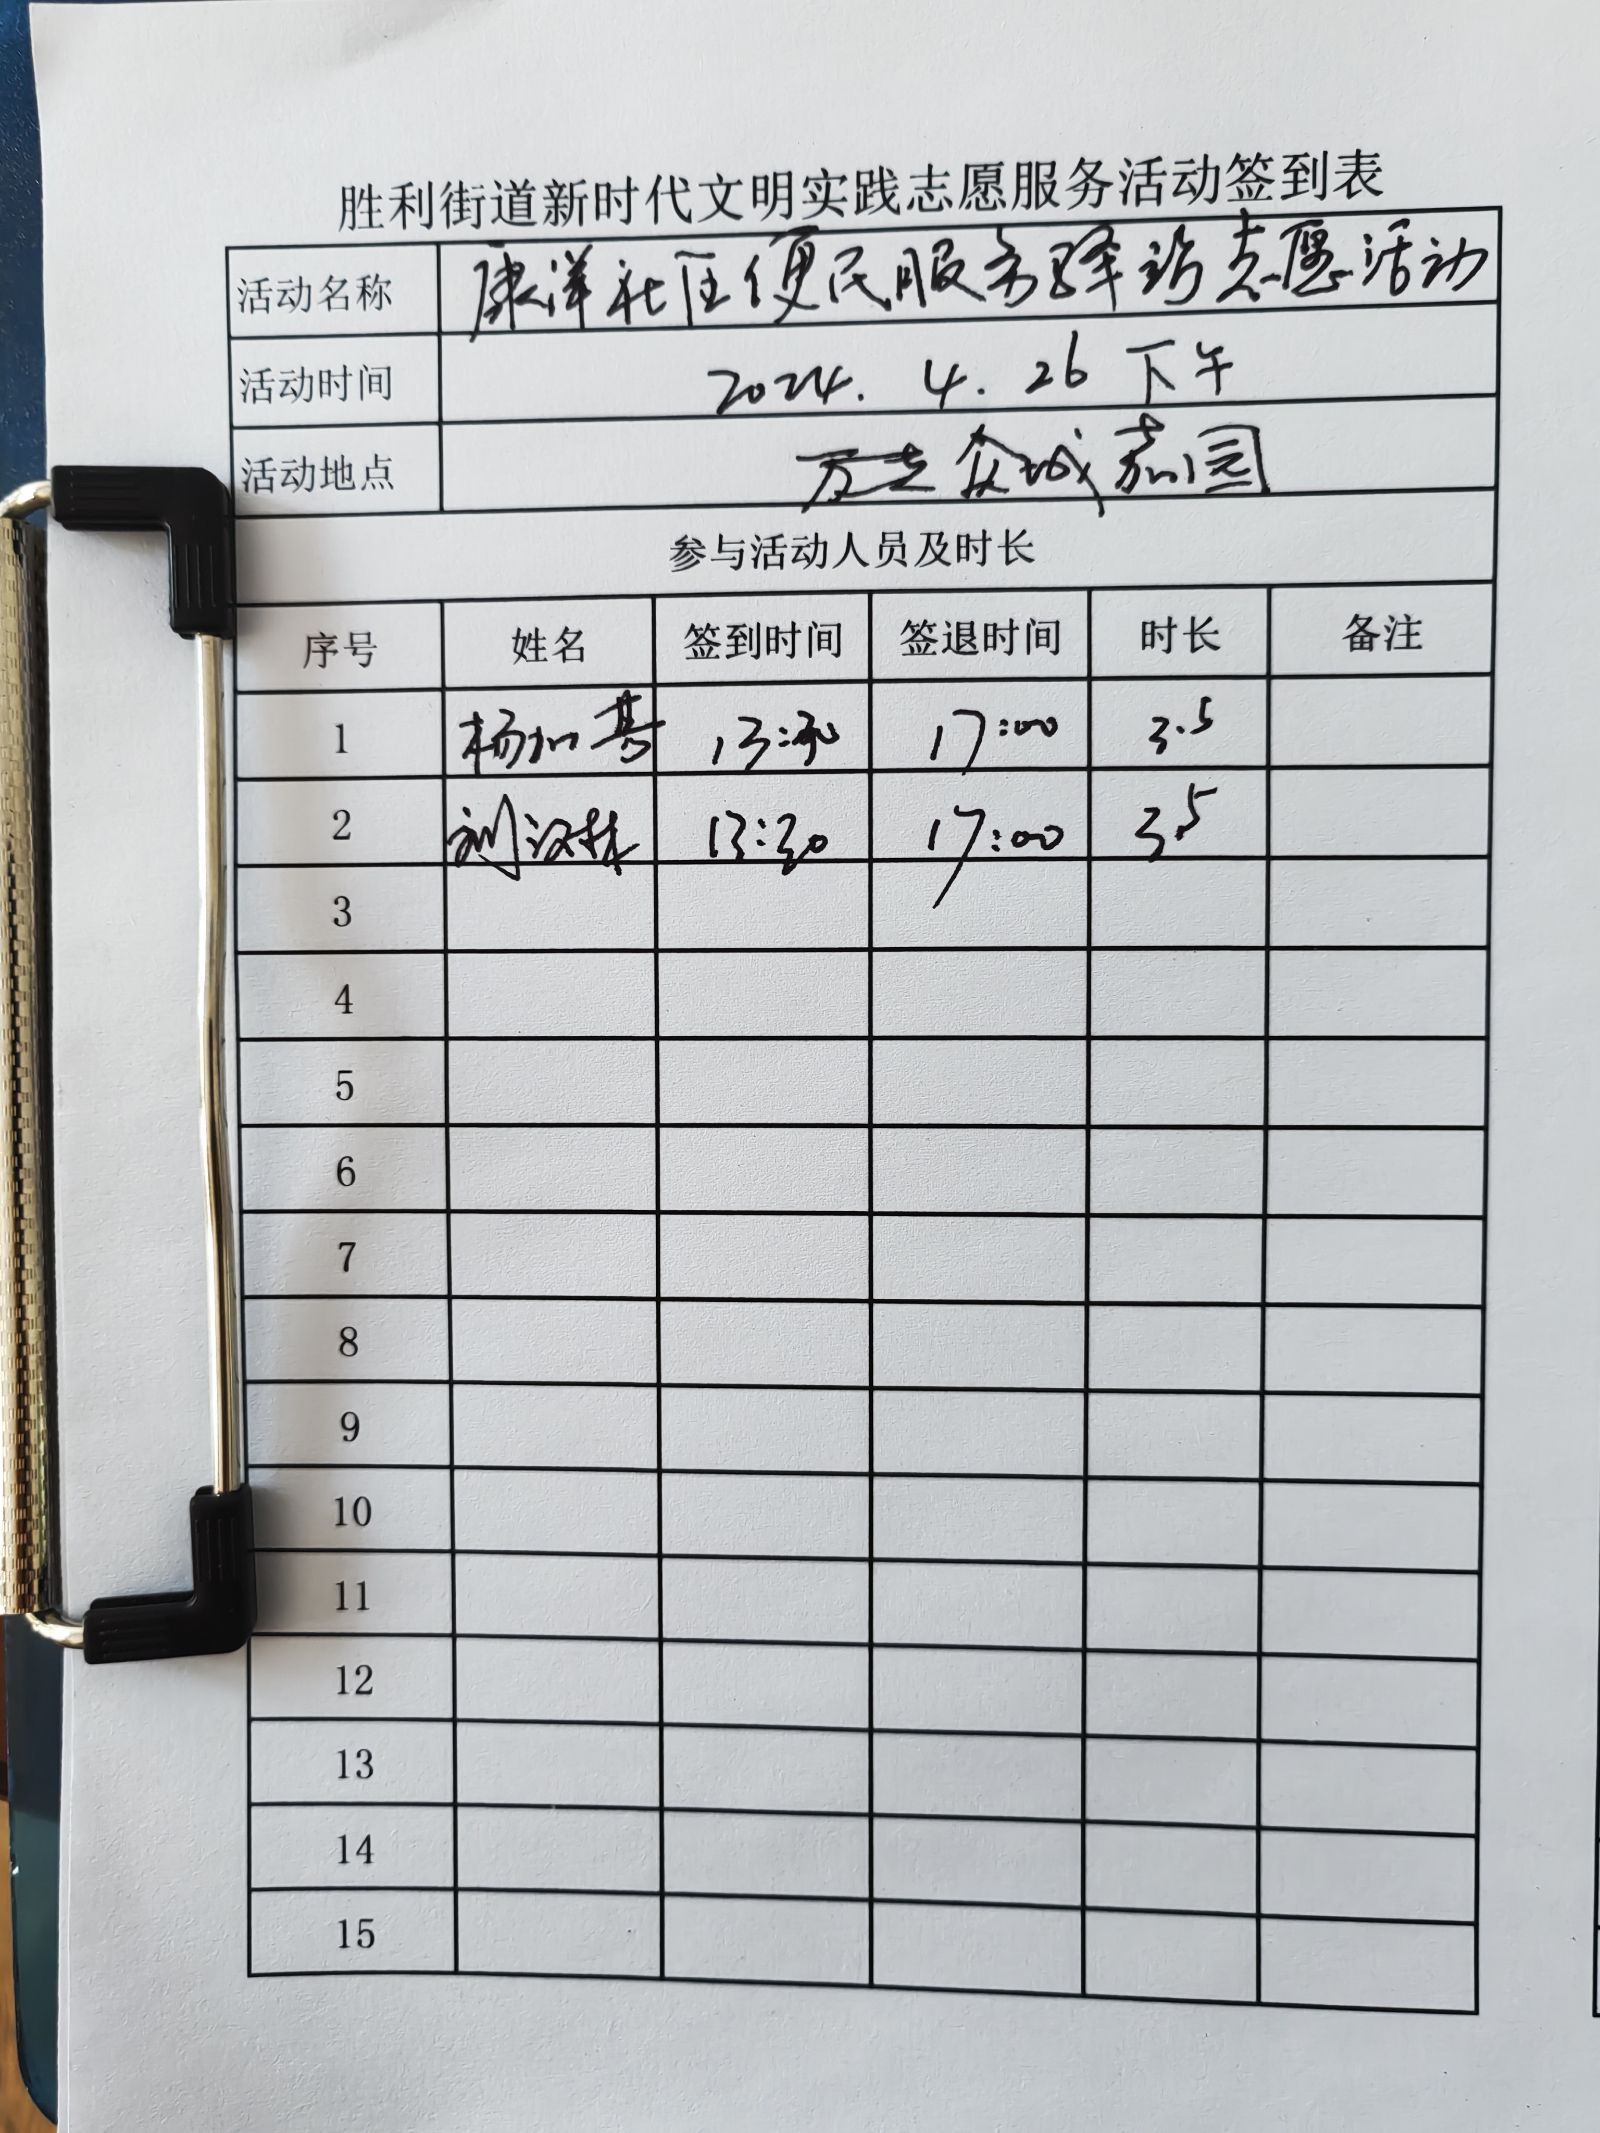 胜利街道新时代文明实践志愿服务活动签到表
活动名称 康洋社区便民服务驿站志愿活动
活动时间 2024.4.26下午
活动地点 众城嘉园
参与活动人员及时长
序号 姓名 签到时间 签退时间 时长 备注
1 杨 13:30 17:00 3.5
2 刘汉林 13:30 17:00 3.5
3
4
5
6
7
8
9
10
11
12
13
14
15